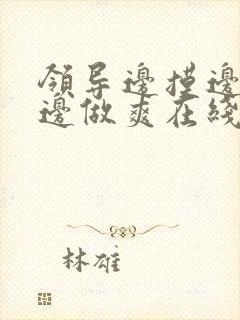 領导邊摸邊
邊做爽在綫
林雄